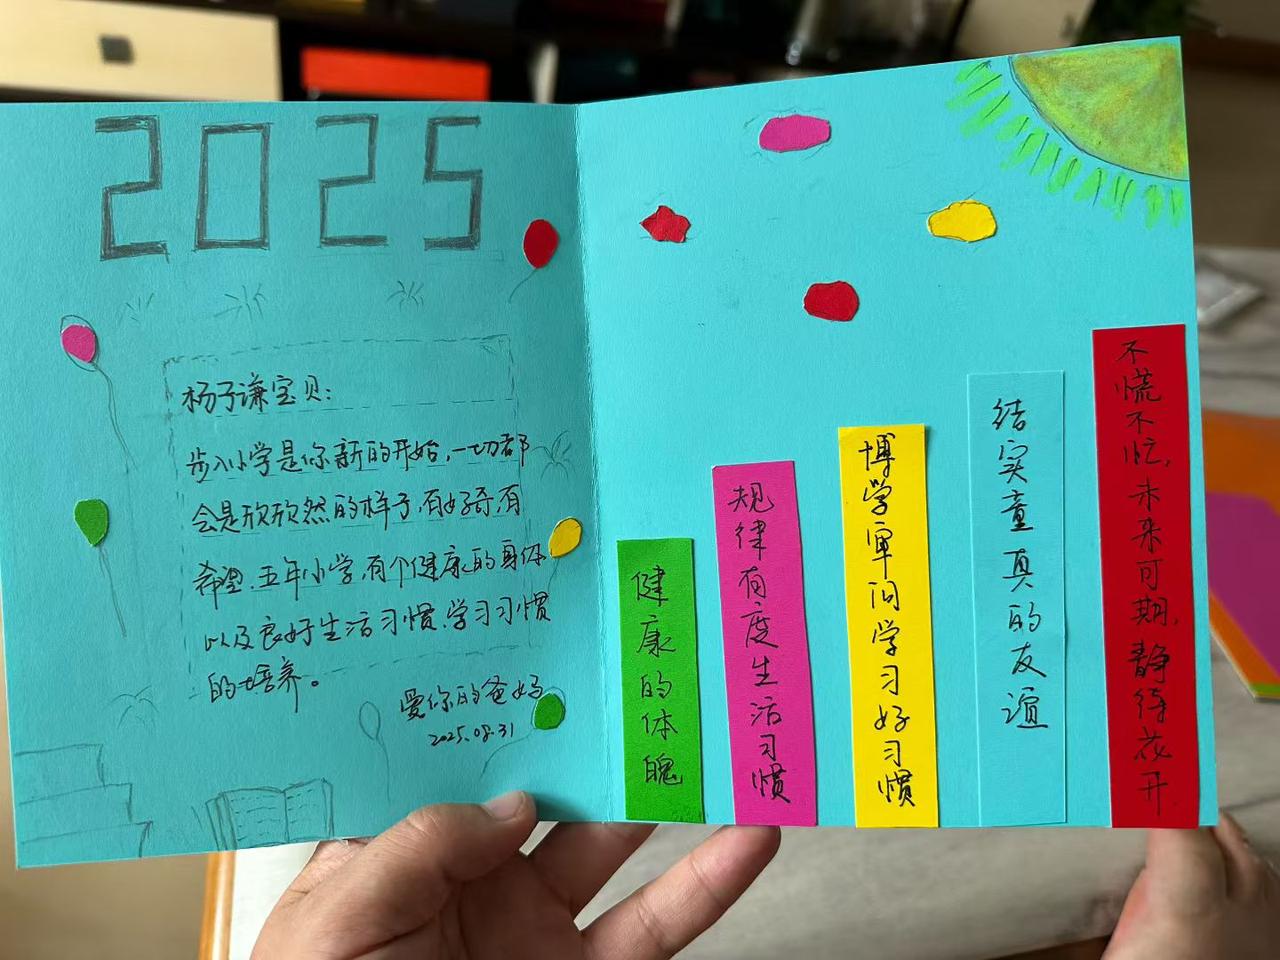 2025
杨子谦宝贝：
步入小学是你新的开始，一切都
会是欣欣然的样子，有好奇，有
希望，五年小学，有个健康的身体
以及良好生活习惯、学习习惯
的培养。
爱你的爸妈
2025.08.31
健康的体魄
规律有度生活习惯
博学审问学习好习惯
结实童真的友谊
不慌不忙，未来可期，静待花开